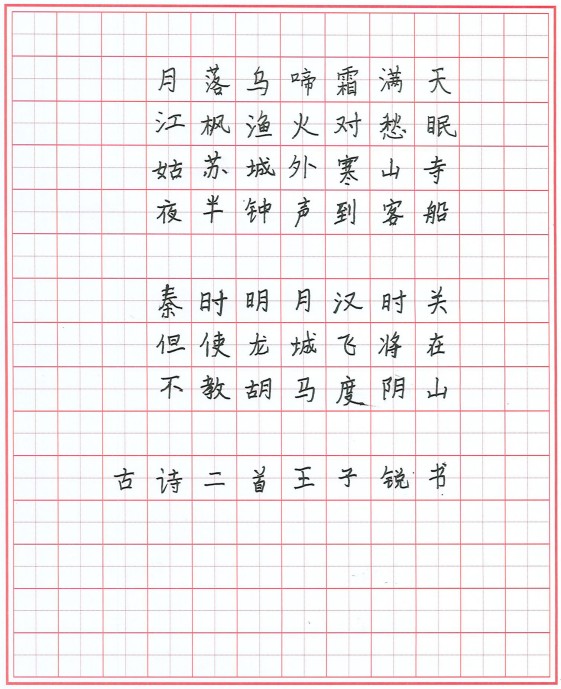 月落乌啼霜满天
江枫渔火对愁眠
姑苏城外寒山寺
夜半钟声到客船
秦时明月汉时关
但使龙城飞将在
不教胡马度阴山
古诗二首王子锐书